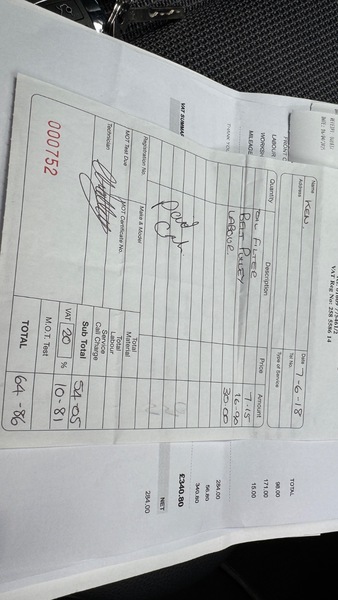 VAT Reg No: 258 5586 14
Name KEN
Address
Date 7-6-18
Tel No.
Type of Service
Quantity
Description
Price
Amount
OIL FILTER 7-15
BELT PULLEY 16-90
LABOUR 30.00
Paid
Cash
Registration No.
Make & Model
MOT Test Due
MOT Certificate No.
Technician
000752
Total Material
Total Labour
Service Call Charge
Sub Total 54-05
VAT 20 % 10-81
M.O.T. Test
TOTAL 64-86
LABOUR
MILEAGE
VAT SUMMA
TOTAL
98.00
171.00
15.00
284.00
56.80
340.80
£340.80
NET
284.00